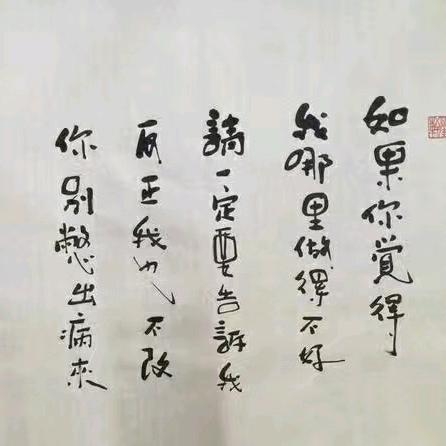 如果你覺得
我哪里做得不好
請一定要告訴我
反正我也不改
你別憋出病來